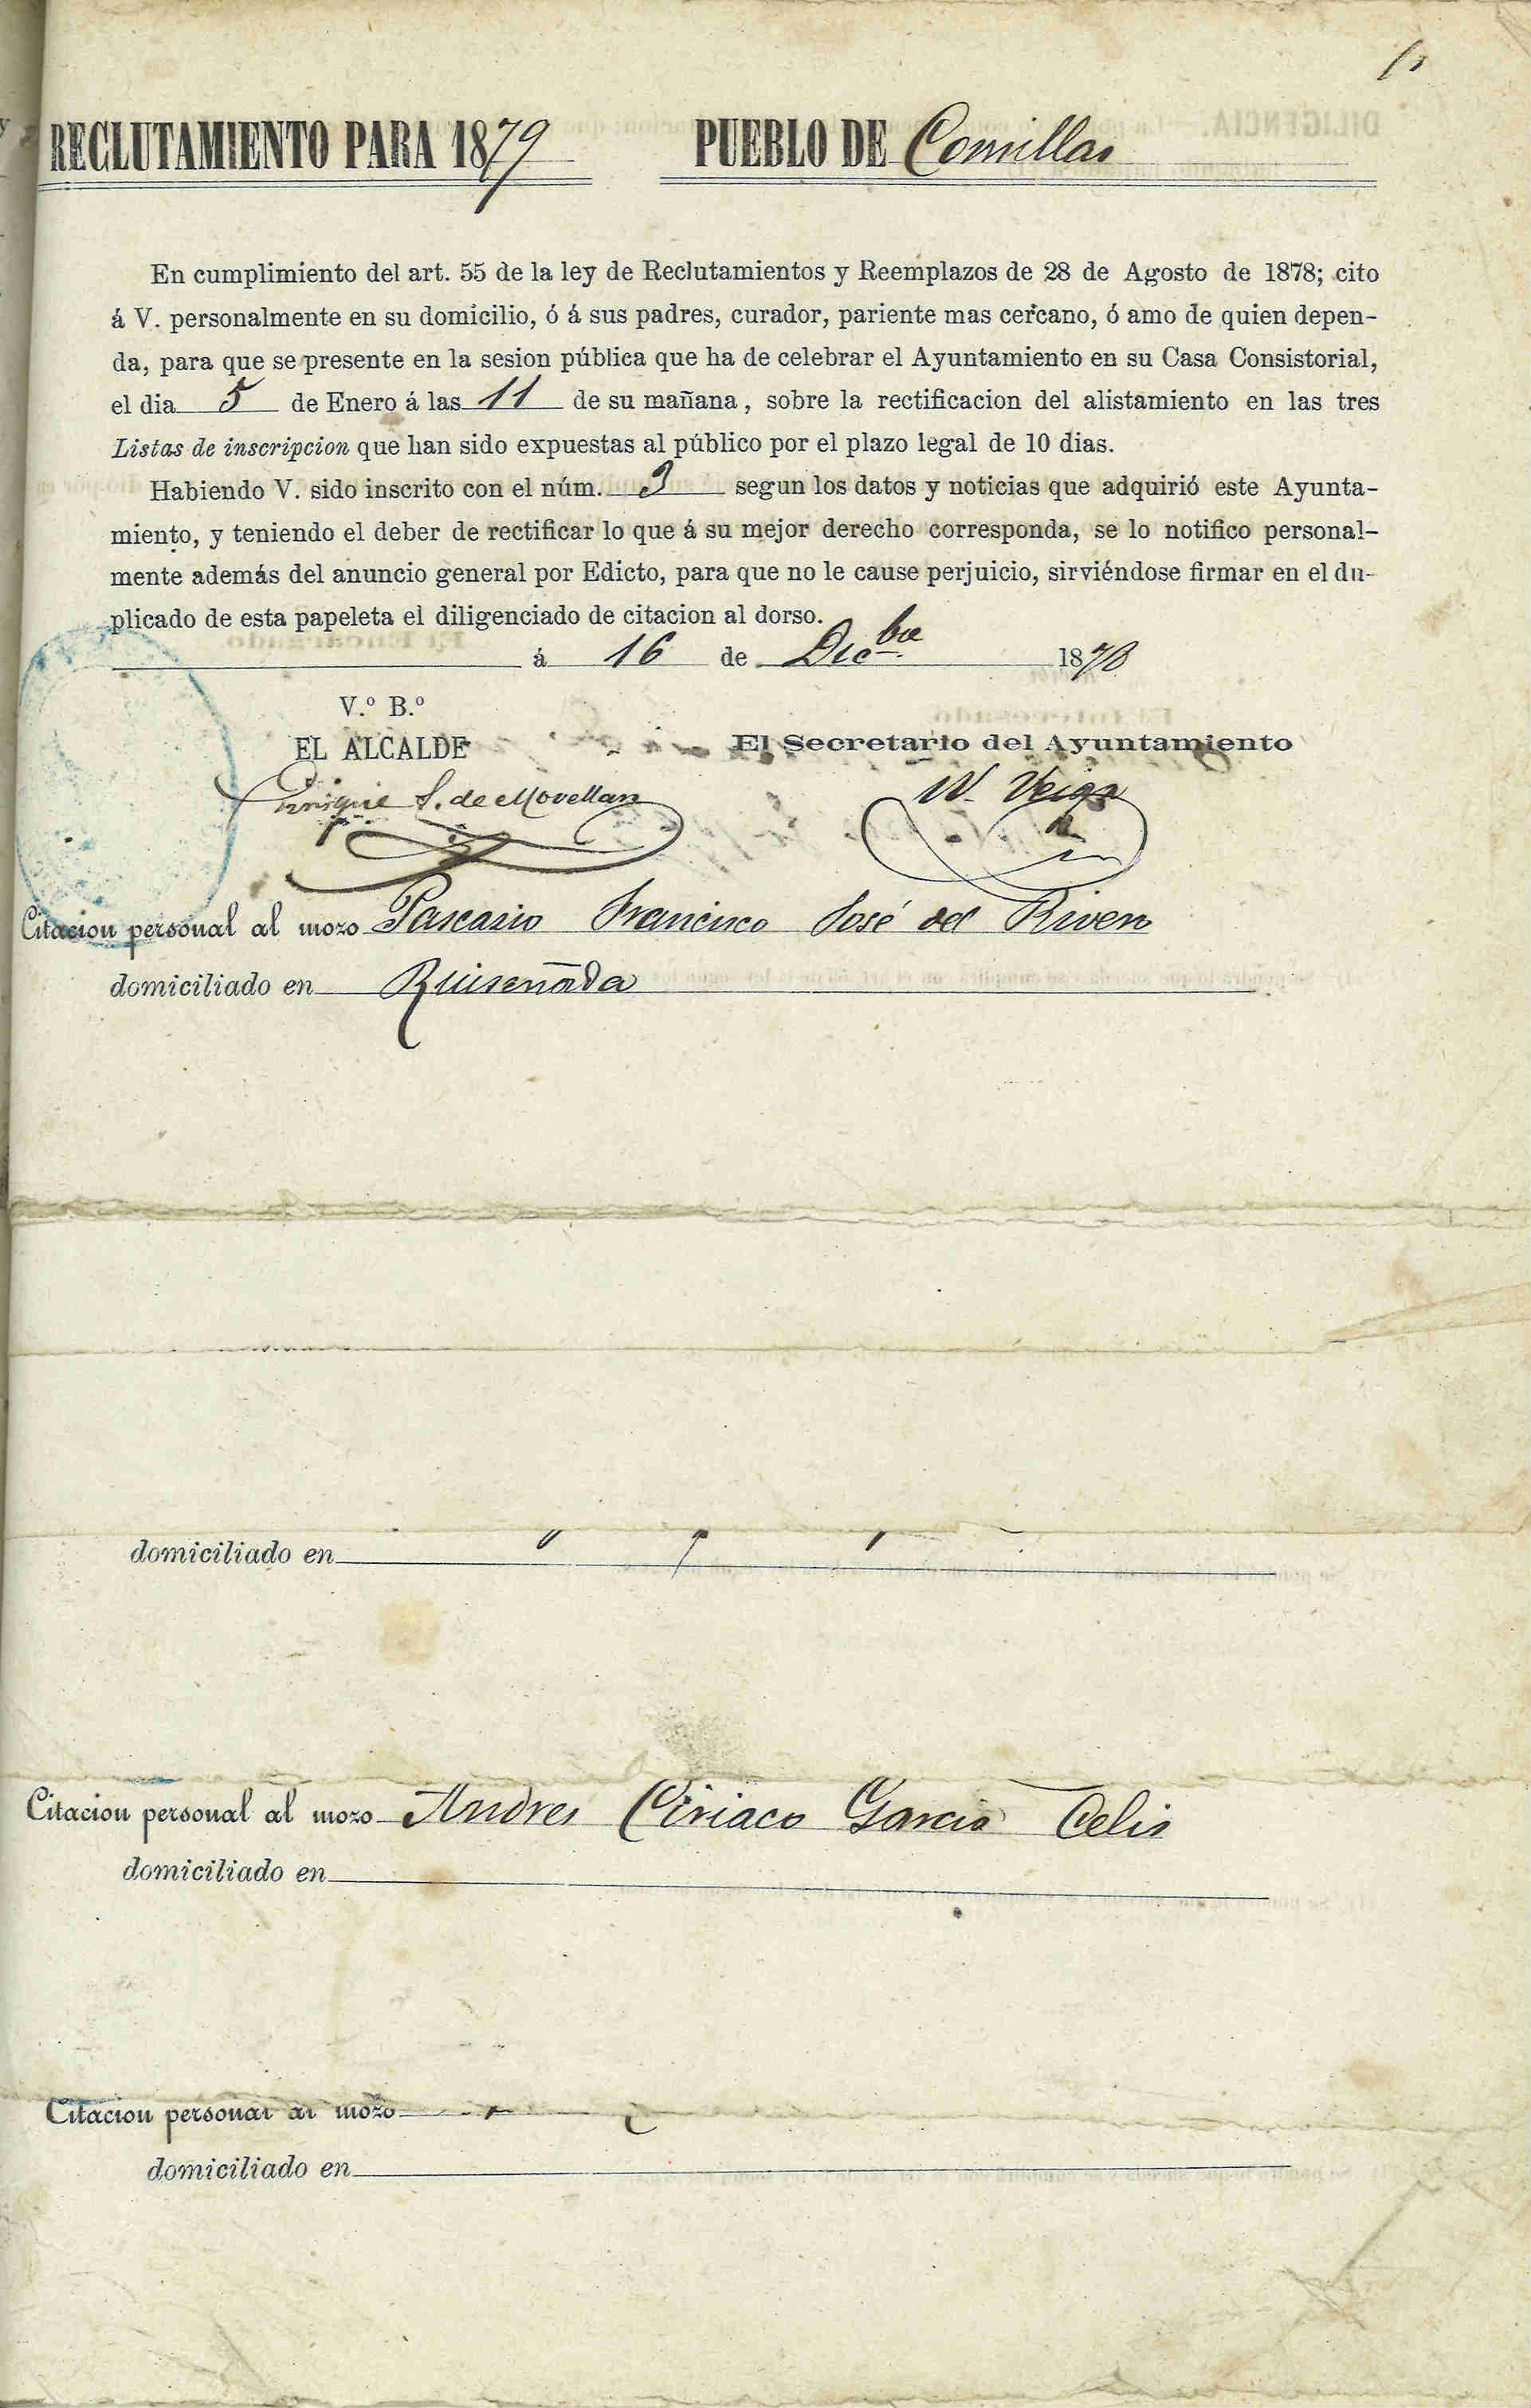 RECLUTAMIENTO PARA 1879 PUEBLO DE Comillas
En cumplimiento del art. 55 de la ley de Reclutamientos y Reemplazos de 28 de Agosto de 1878; cito
á V. personalmente en su domicilio, ó á sus padres, curador, pariente mas cercano, ó amo de quien depen-
da, para que se presente en la sesion pública que ha de celebrar el Ayuntamiento en su Casa Consistorial,
el dia 5 de Enero á las 11 de su mañana, sobre la rectificacion del alistamiento en las tres
Listas de inscripcion que han sido expuestas al público por el plazo legal de 10 dias.
Habiendo V. sido inscrito con el núm. 3 segun los datos y noticias que adquirió este Ayunta-
miento, y teniendo el deber de rectificar lo que á su mejor derecho corresponda, se lo notifico personal-
mente además del anuncio general por Edicto, para que no le cause perjuicio, sirviéndose firmar en el du-
plicado de esta papeleta el diligenciado de citacion al dorso.
á 16 de Dicbre 1878
V.º B.º
EL ALCALDE El Secretario del Ayuntamiento
Enrique S. de Movellan W. Veiga
Citacion personal al mozo Pascasio Francisco José del Rivero
domiciliado en Ruiseñada
domiciliado en
Citacion personal al mozo Andres Ciriaco Garcia Celis
domiciliado en
Citacion personal al mozo
domiciliado en